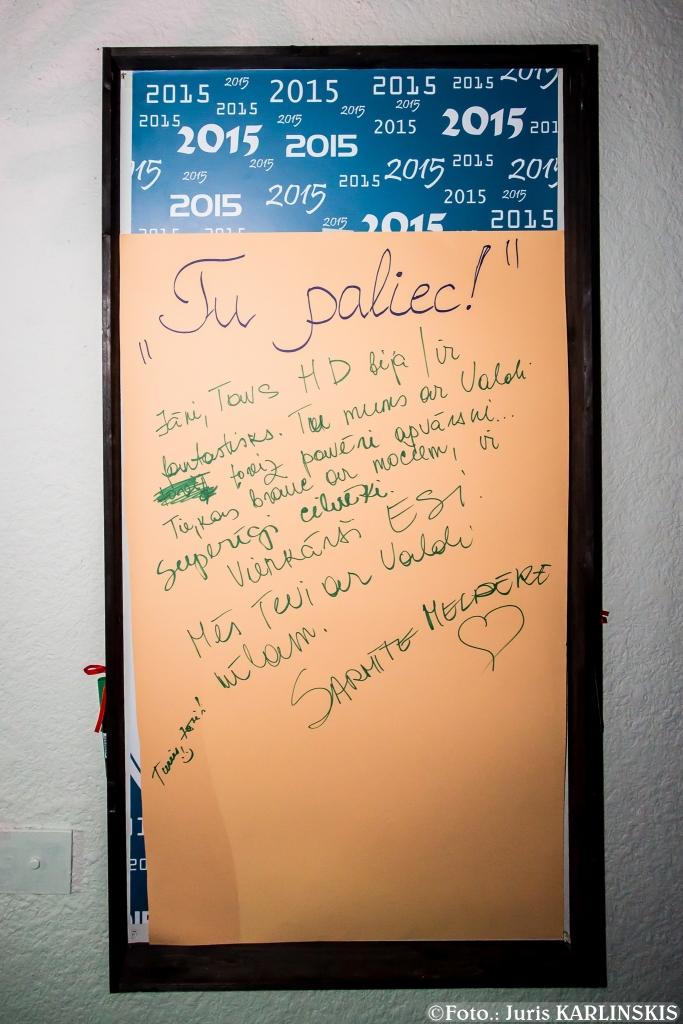 2015 2015 2015 2015 2015 2015
2015 2015 2015
2015 2015 2015 2015 2015 201
2015 2015
15 2015 2015 2015 2015 201
2015 2015 2015
2015 2015 2015 2015
„Tu paliec!"
Jāni, Tavs HD bija / ir
fantastisks. Tu mums ar Valdi
toreiz pavēri apvārsni...
Tie, kas brauc ar močiem, ir
superīgi cilvēki.
Vienkārši ESI.
Mēs Tevi ar Valdi
mīlam.
SARMĪTE MELDERE
©Foto.: Juris KARLINSKIS